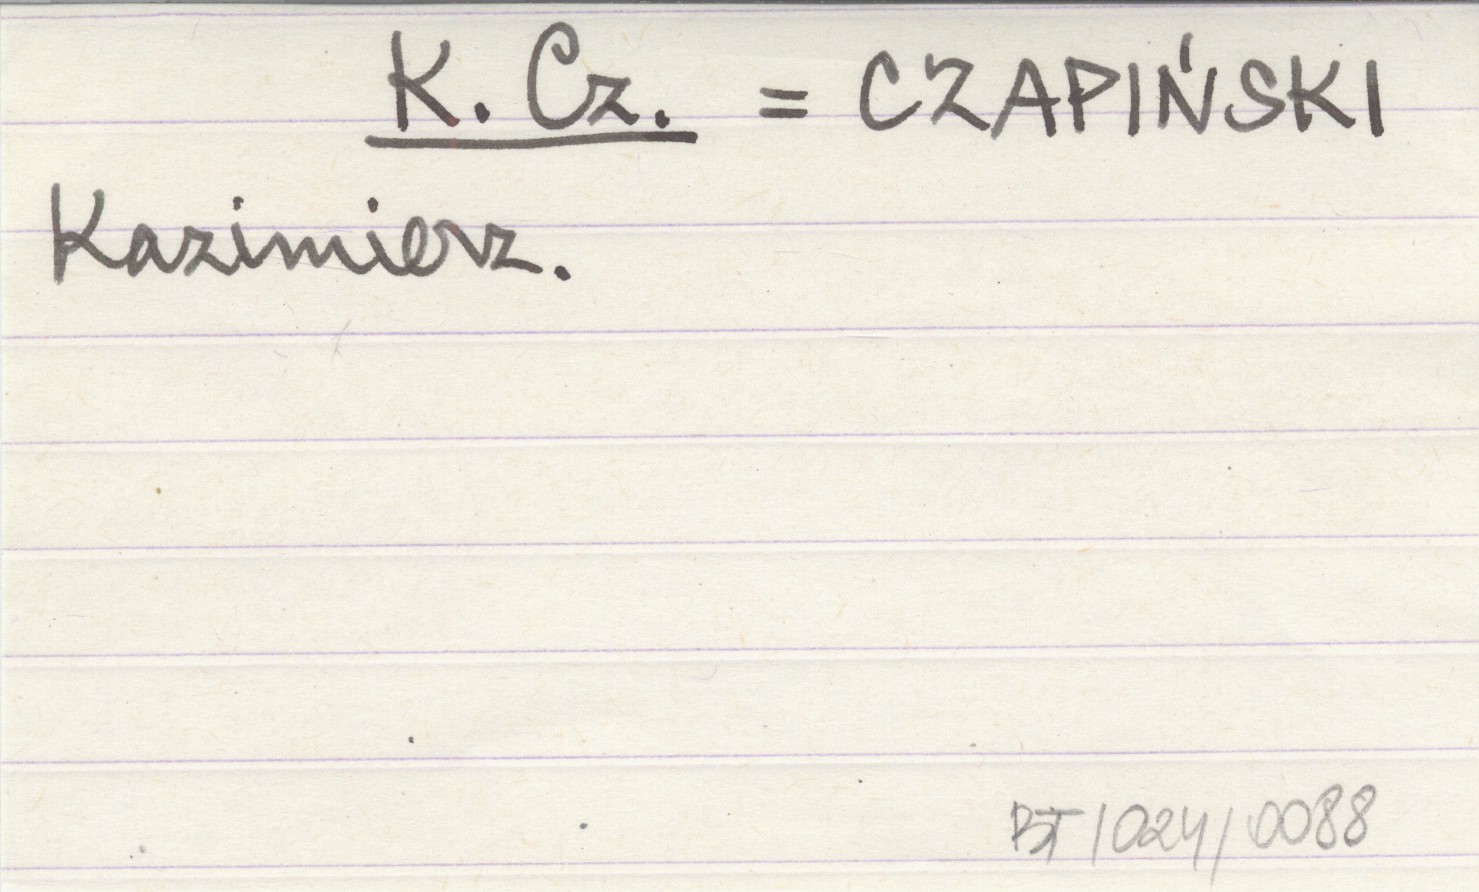 K. Cz. = CZAPIŃSKI
Kazimierz.
BT/024/0088